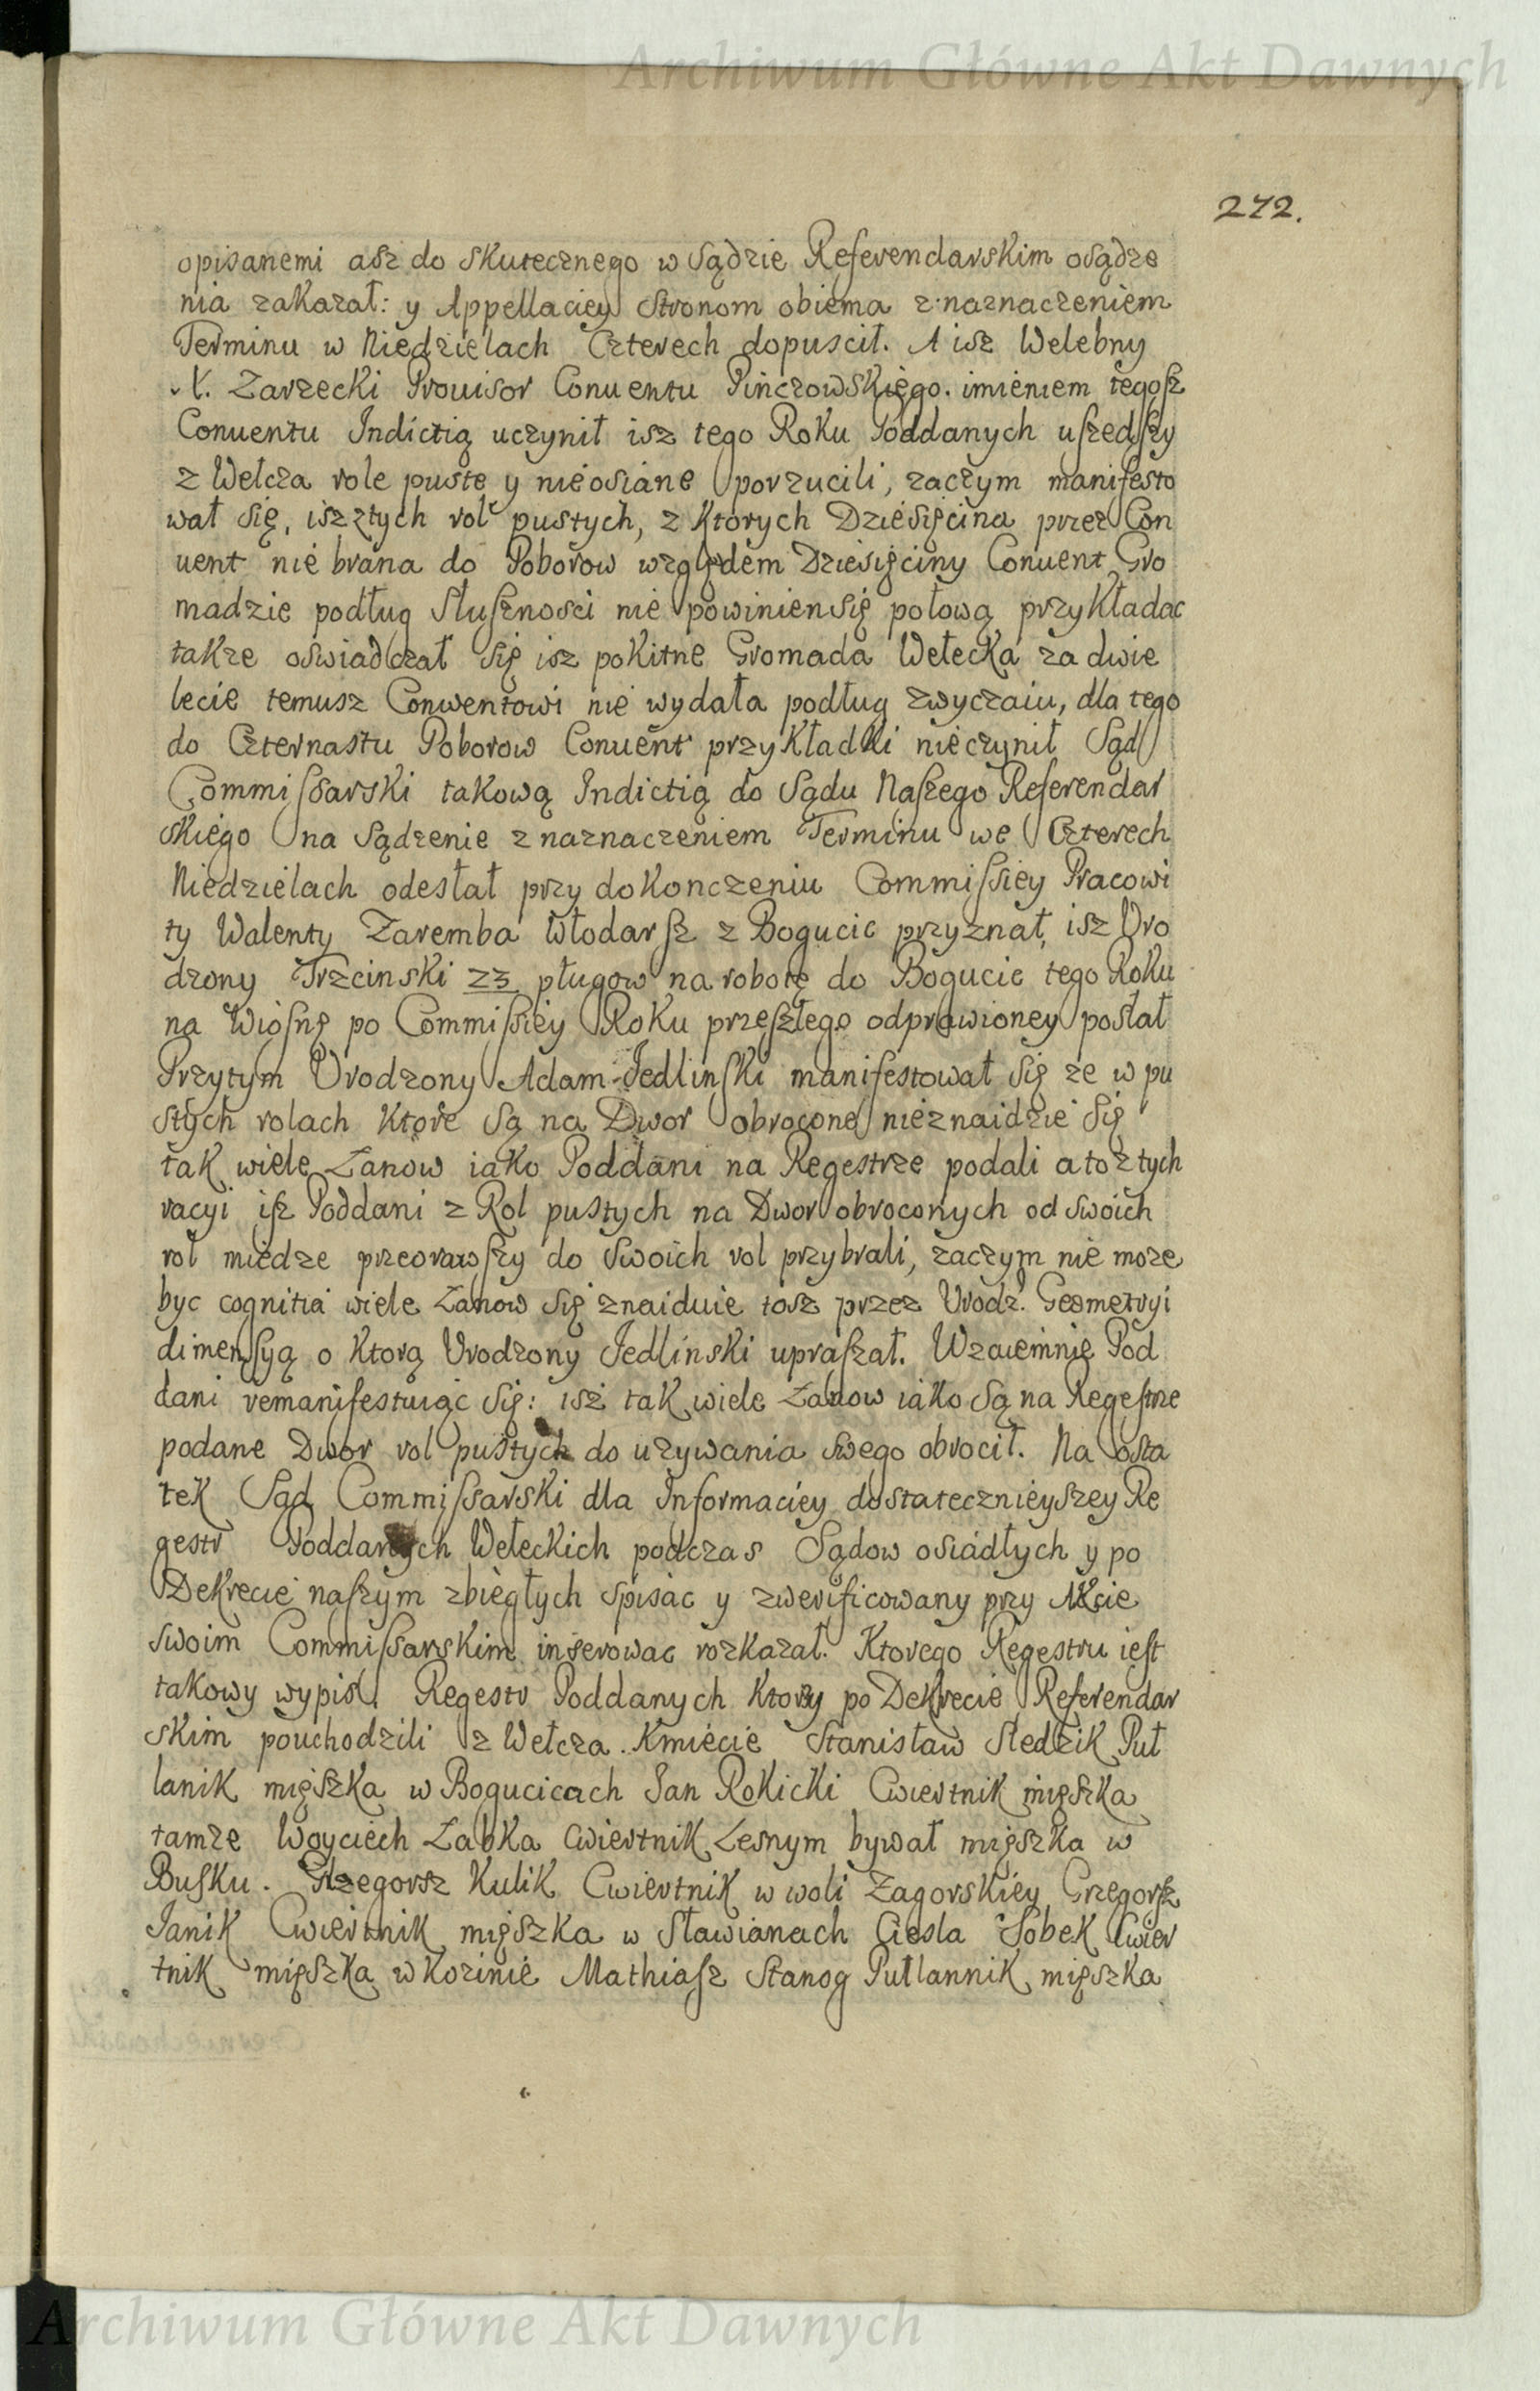 Archiwum Główne Akt Dawnych
272.
opisanemi asz do skutecznego w Sądzie Referendarskim osądze
nia zakazał: y Appellaciey stronom obiema z naznaczeniem
Terminu w Niedzielach Czterech dopuscił. A isz Welebny
X. Zarzecki Prouisor Conuentu Pinczowskiego. imieniem tegosz
Conuentu Indictią uczynił isz tego Roku Poddanych uszedszy
z Wełcza role puste y nieosiane porzucili, zaczym manifesto
wał się, isz ztych rol pustych, z ktorych Dziesięcina przez Con
uent nie brana do Poborow względem Dziesięciny Conuent Gro
madzie podług słuszności nie powinien się połową przykładac
takze oswiadczał się isz pokitne Gromada Wełecka za dwie
lecie temusz Conwentowi nie wydała podług zwyczaiu, dla tego
do Czternastu Poborow Conuent przykładki nieczynił Sąd
Commissarski takową Indictią do Sądu Naszego Referendar
skiego na Sądzenie z naznaczeniem Terminu we Czterech
Niedzielach odesłał przy dokonczeniu Commissiey Pracowi
ty Walenty Zaremba Włodarsz z Bogucic przyznał, isz Uro
dzony Trzcinski 23 pługow na robotę do Bogucic tego Roku
na Wiosnę po Commissiey Roku przeszłego odprawioney posłał
Przytym Urodzony Adam Jedlinski manifestował się ze w pu
stych rolach ktore są na Dwor obrocone nieznaidzie się
tak wiele Łanow iako Poddani na Regestrze podali a to z tych
racyi isz Poddani z Rol pustych na Dwor obroconych od swoich
rol miedze przeorawszy do swoich rol przybrali, zaczym nie moze
byc cognitia wiele Łanow się znaiduie tosz przez Urodz. Geometryi
dimensyą o ktorą Urodzony Jedlinski upraszał. Wzaiemnie Pod
dani remanifestuiąc się: isz tak wiele Łanow iako są na Regestrze
podane Dwor rol pustych do uzywania swego obrocił. Na osta
tek Sąd Commissarski dla Informaciey dostatecznieyszey Re
gestr Poddanych Wełeckich podczas Sądow osiadłych y po
Dekrecie naszym zbiegłych spisac y zwerificowany przy Akcie
swoim Commissarskim inserowac rozkazał. Ktorego Regestru iest
takowy wypis. Regestr Poddanych ktorzy po Dekrecie Referendar
skim pouchodzili z Wełcza. Kmiecie Stanisław Sledzik Puł
lanik mięszka w Bogucicach Jan Rokicki Cwiertnik mięszka
tamze Woyciech Zabka Cwiertnik Lesnym bywał mięszka w
Busku. Grzegorsz Kulik Cwiertnik w woli Zagorskiey Grzegorsz
Janik Cwiertnik mięszka w Sławianach Ciesla Sobek Cwier
tnik mięszka w Kozinie Mathiasz Stanog Pułlannik mięszka
Archiwum Główne Akt Dawnych